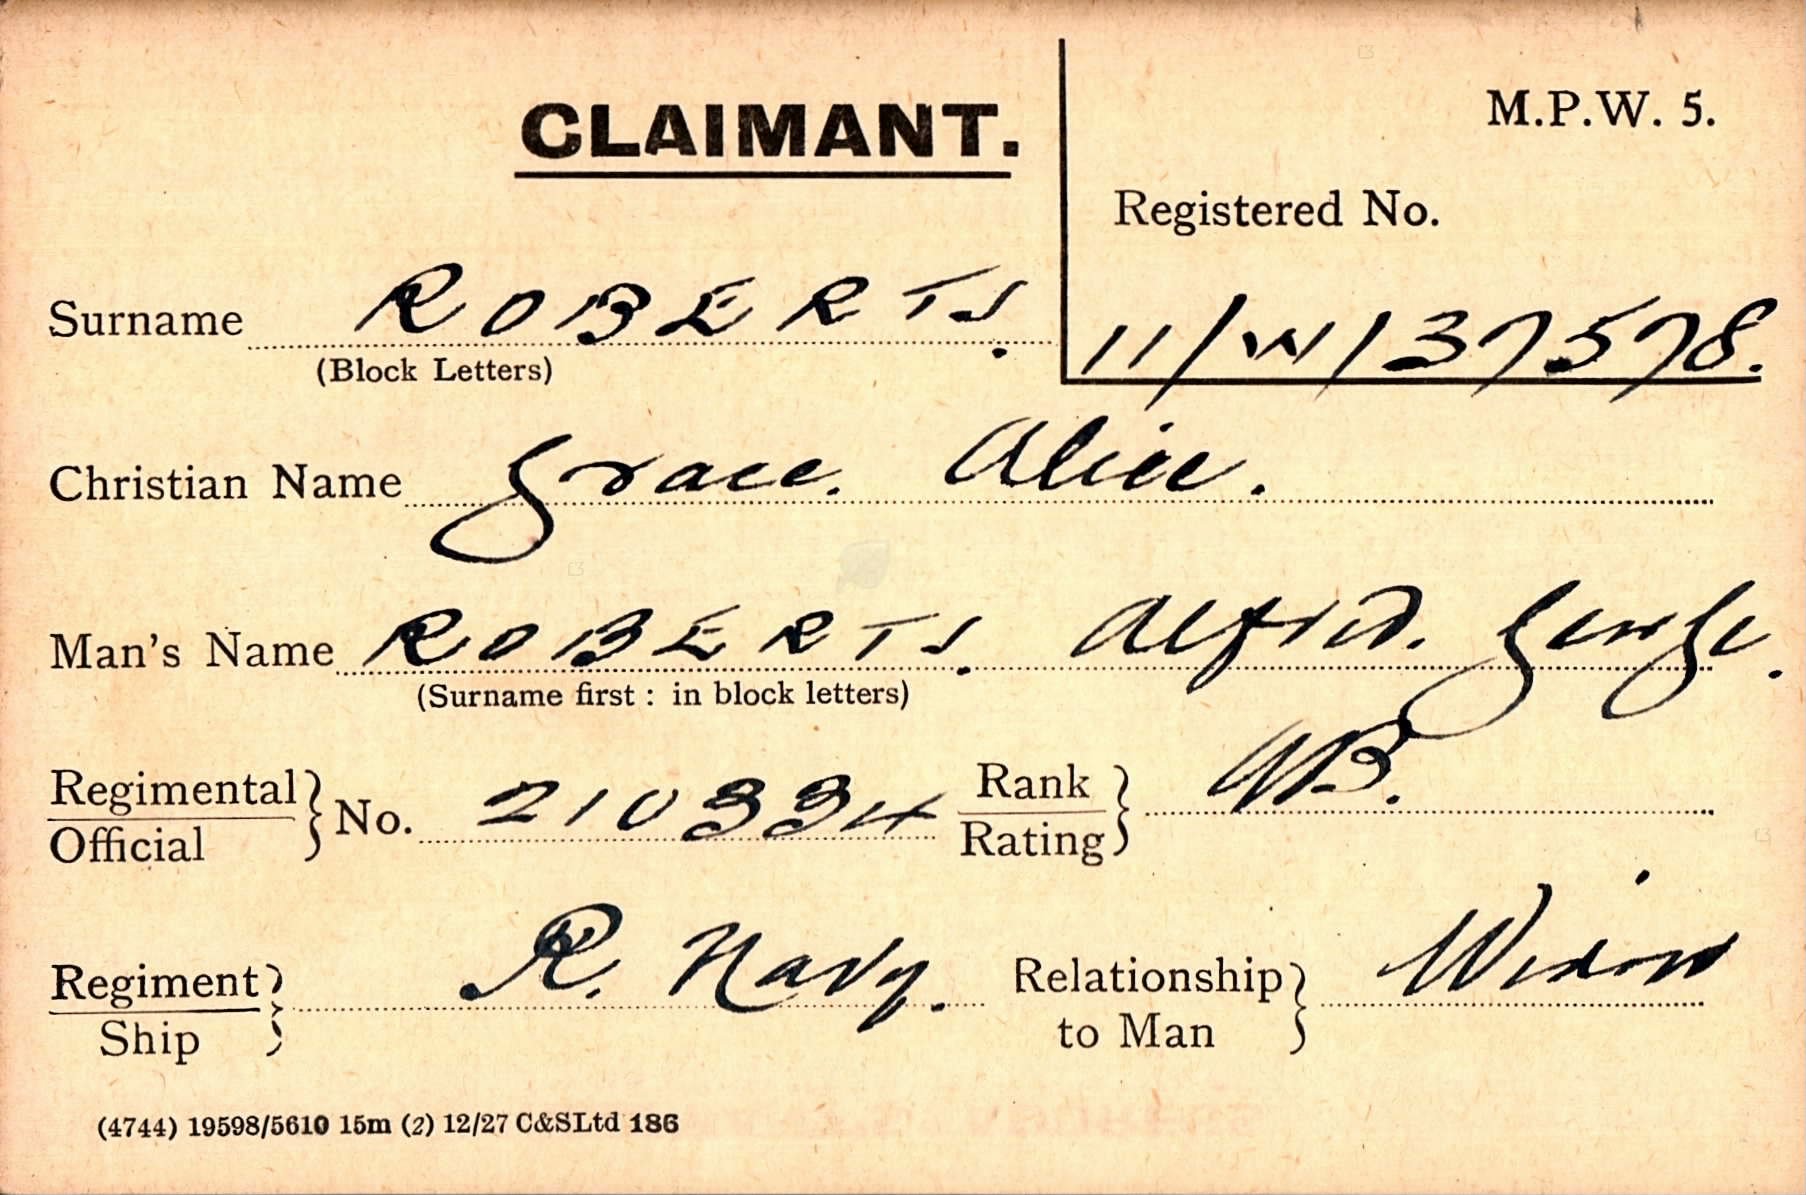 CLAIMANT.
M.P.W. 5.
Registered No.
11/W/37578.
Surname ROBERTS.
(Block Letters)
Christian Name Grace. Alice.
Man's Name ROBERTS. Alfred. George.
(Surname first : in block letters)
Regimental
Official
No. 210334
Rank
Rating
AB.
Regiment
Ship
R. Navy.
Relationship
to Man
Widow
(4744) 19598/5610 15m (2) 12/27 C&SLtd 186